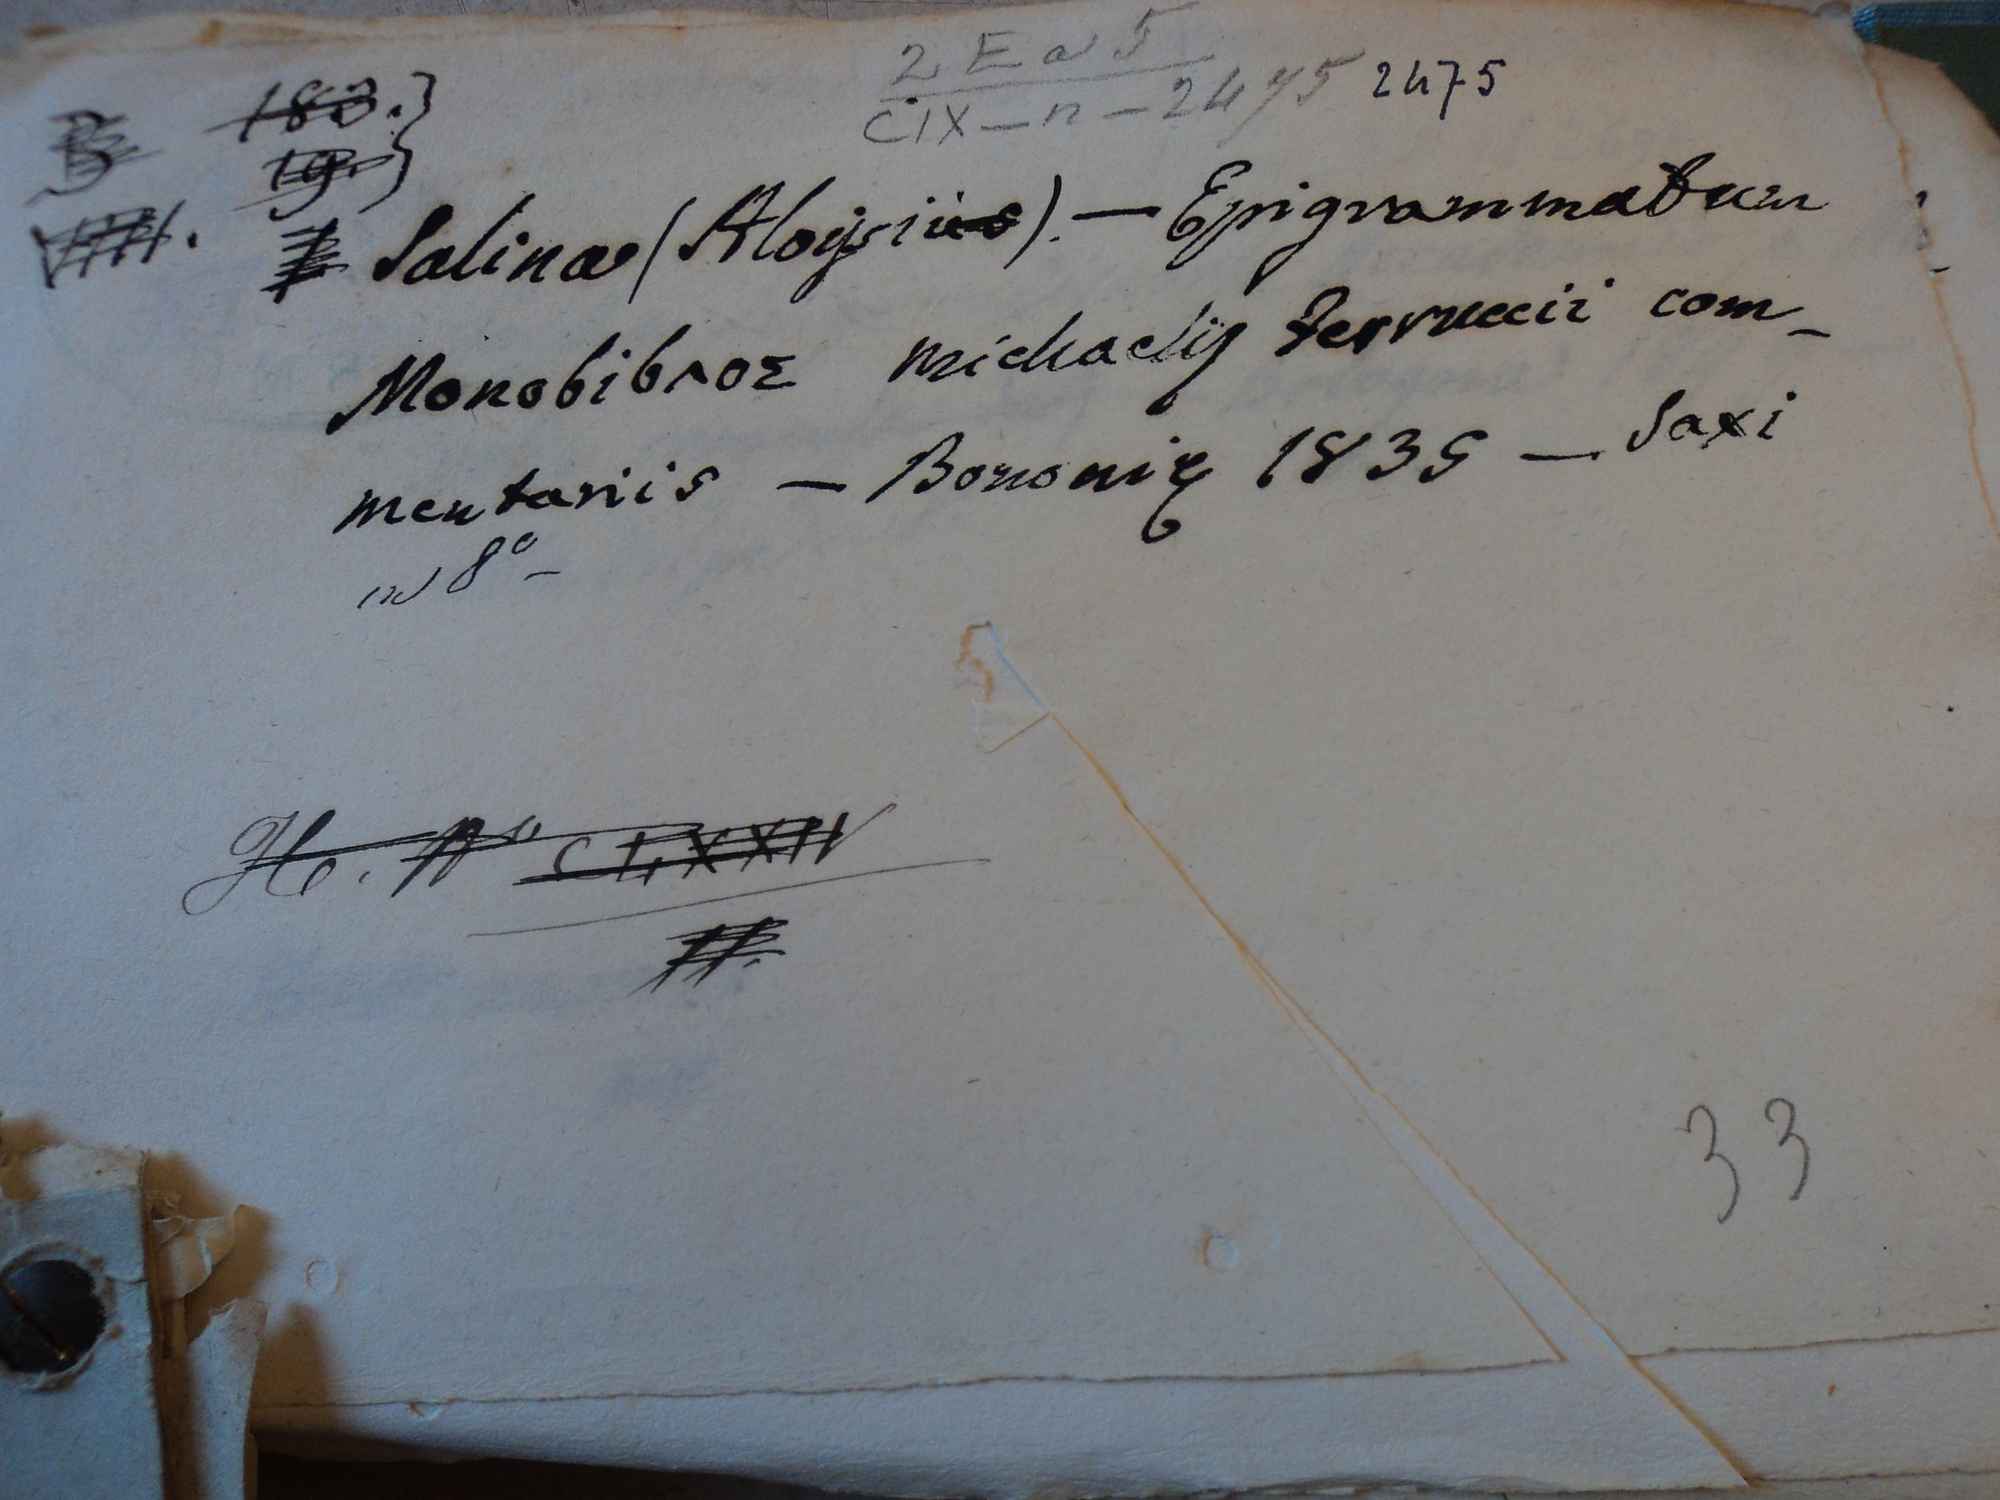 2 E a 5
CIX - n - 2475 2475
B 183.}
VIII. 19.}
Salina (Aloysius). — Epigrammatum
Monobibλος Michaelis Ferruccii com-
mentariis — Bononię 1835 — Saxi
in 8º —
H. Nº CLXXIV
33